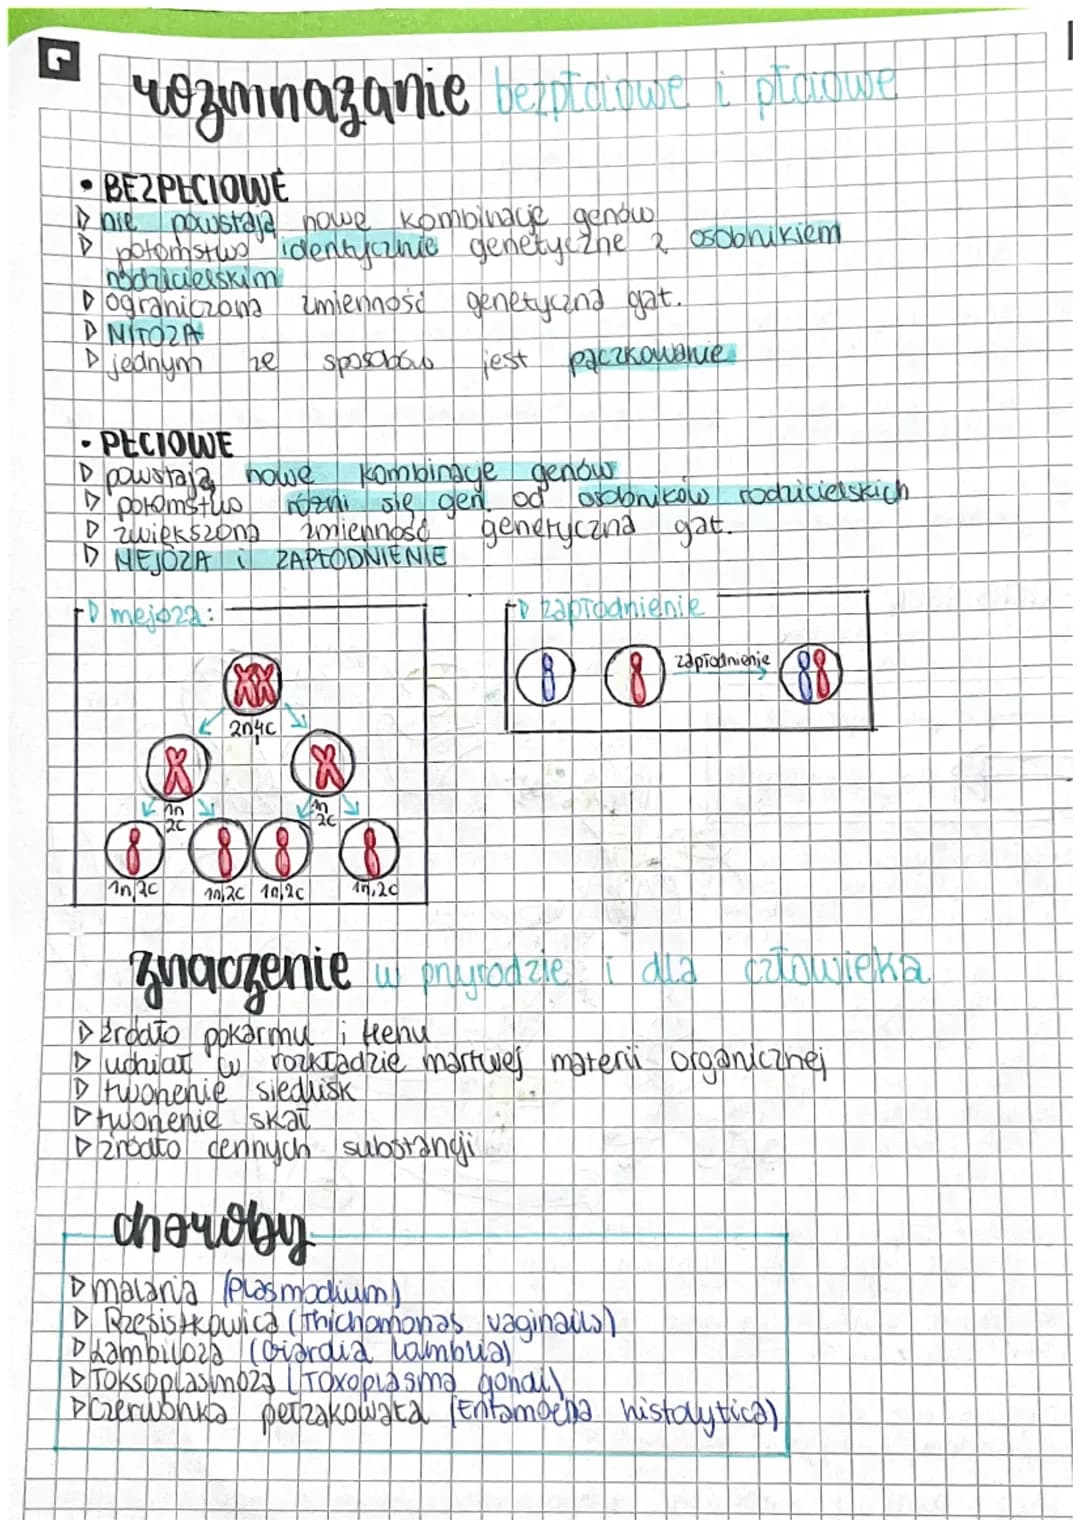 rozmnażanie bezpłciowe i płciowe
• BEZPŁCIOWE
▷ nie powstają nowe kombinacje genów
▷ potomstwo identycznie genetyczne z osobnikiem
rodzicielskim
▷ ograniczona zmienność genetyczna gat.
▷ MITOZA
▷ jednym ze sposobów jest pączkowanie
• PŁCIOWE
▷ powstają nowe kombinacje genów
▷ potomstwo różni się gen. od osobników rodzicielskich
▷ zwiększona zmienność genetyczna gat.
▷ MEJOZA i ZAPŁODNIENIE
▷ mejoza:
2n4c
1n
2c
1n
2c
1n,2c 1n,2c 1n,2c 1n,2c
▷ zapłodnienie
zapłodnienie
znaczenie w przyrodzie i dla człowieka
▷ źródło pokarmu i tlenu
▷ udział w rozkładzie martwej materii organicznej
▷ tworzenie siedlisk
▷ tworzenie skał
▷ źródło cennych substancji
choroby
▷ malaria (Plasmodium)
▷ Rzęsistkowica (Thichomonas vaginails)
▷ Lambiloza (Giardia Lambia)
▷ Toksoplasmoza (Toxoplasma gondi)
▷ Czerwonka pełzakowata (Entamoeba histolytica)